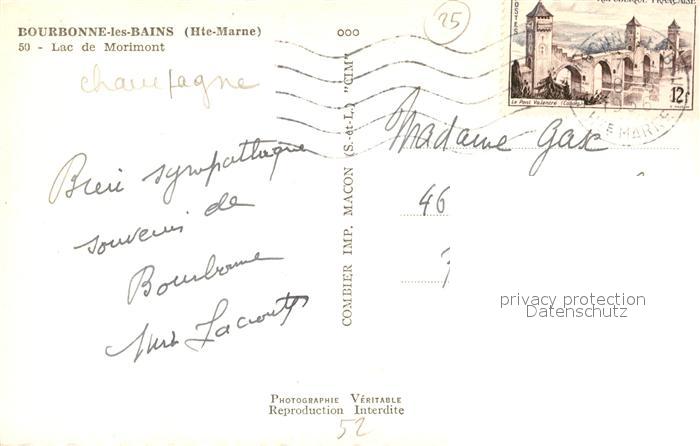 BOURBONNE-les-BAINS (Hte-Marne)
50 - Lac de Morimont
champagne
Bien sympathique
souvenir de
Bourbonne
ooo
COMBIER IMP. MACON (S.-et-L.) "CIM"
25
POSTES
REPUBLIQUE FRANÇAISE
Le Pont Valentré (Cahors)
12F
HTE MARNE
Madame Gax
46
privacy protection
Datenschutz
PHOTOGRAPHIE VÉRITABLE
Reproduction Interdite
52